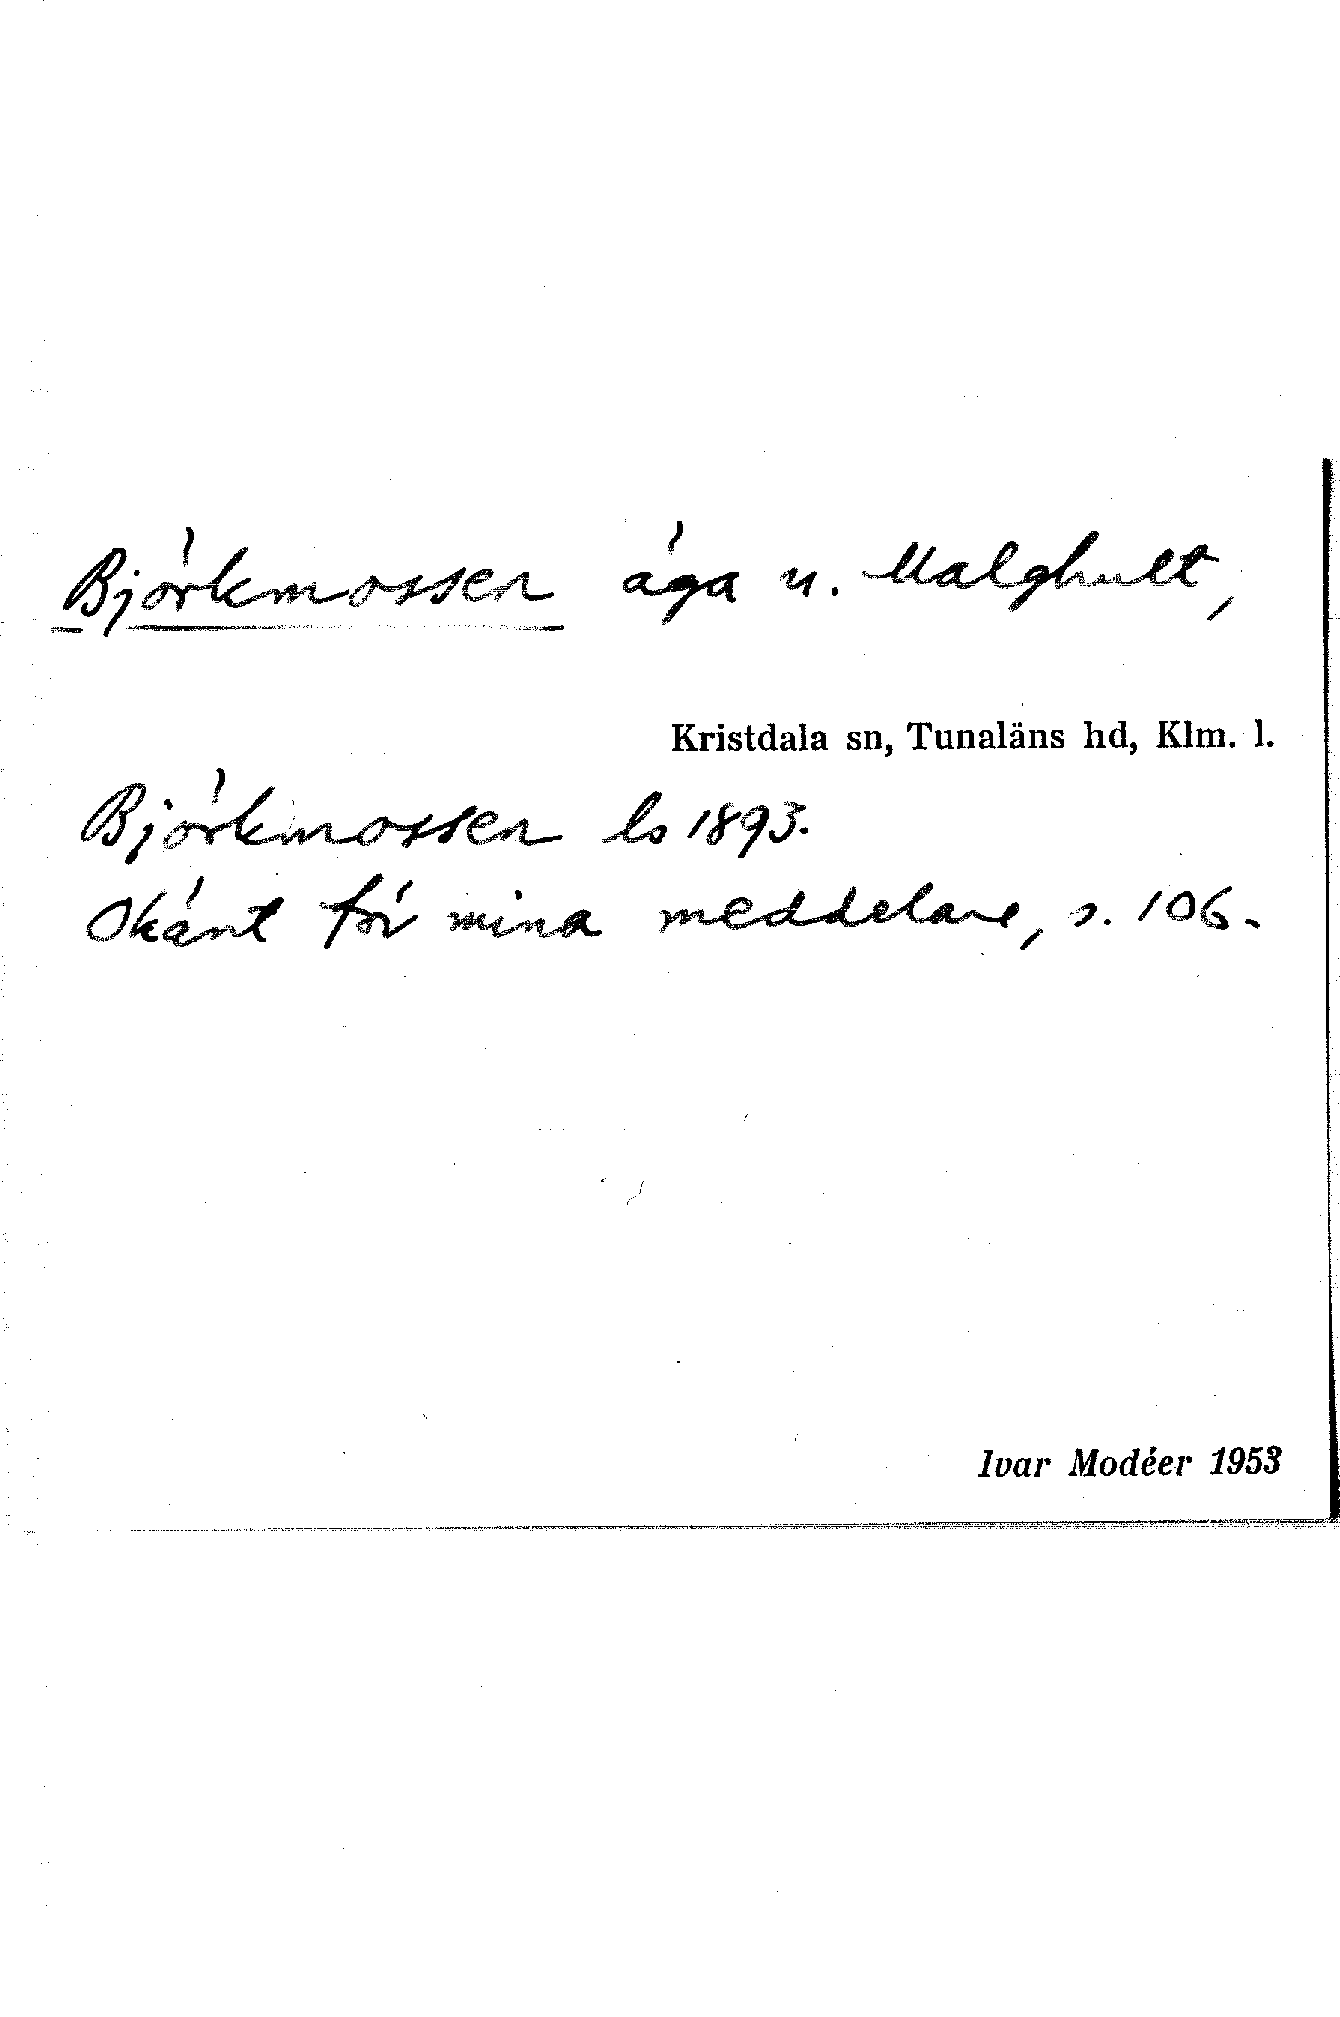 Björkmossen äga u. Malghult,
Kristdala sn, Tunaläns hd, Klm. l.
Björkmossen ls 1893.
Okänt för mina meddelare, s. 106.
Ivar Modéer 1953